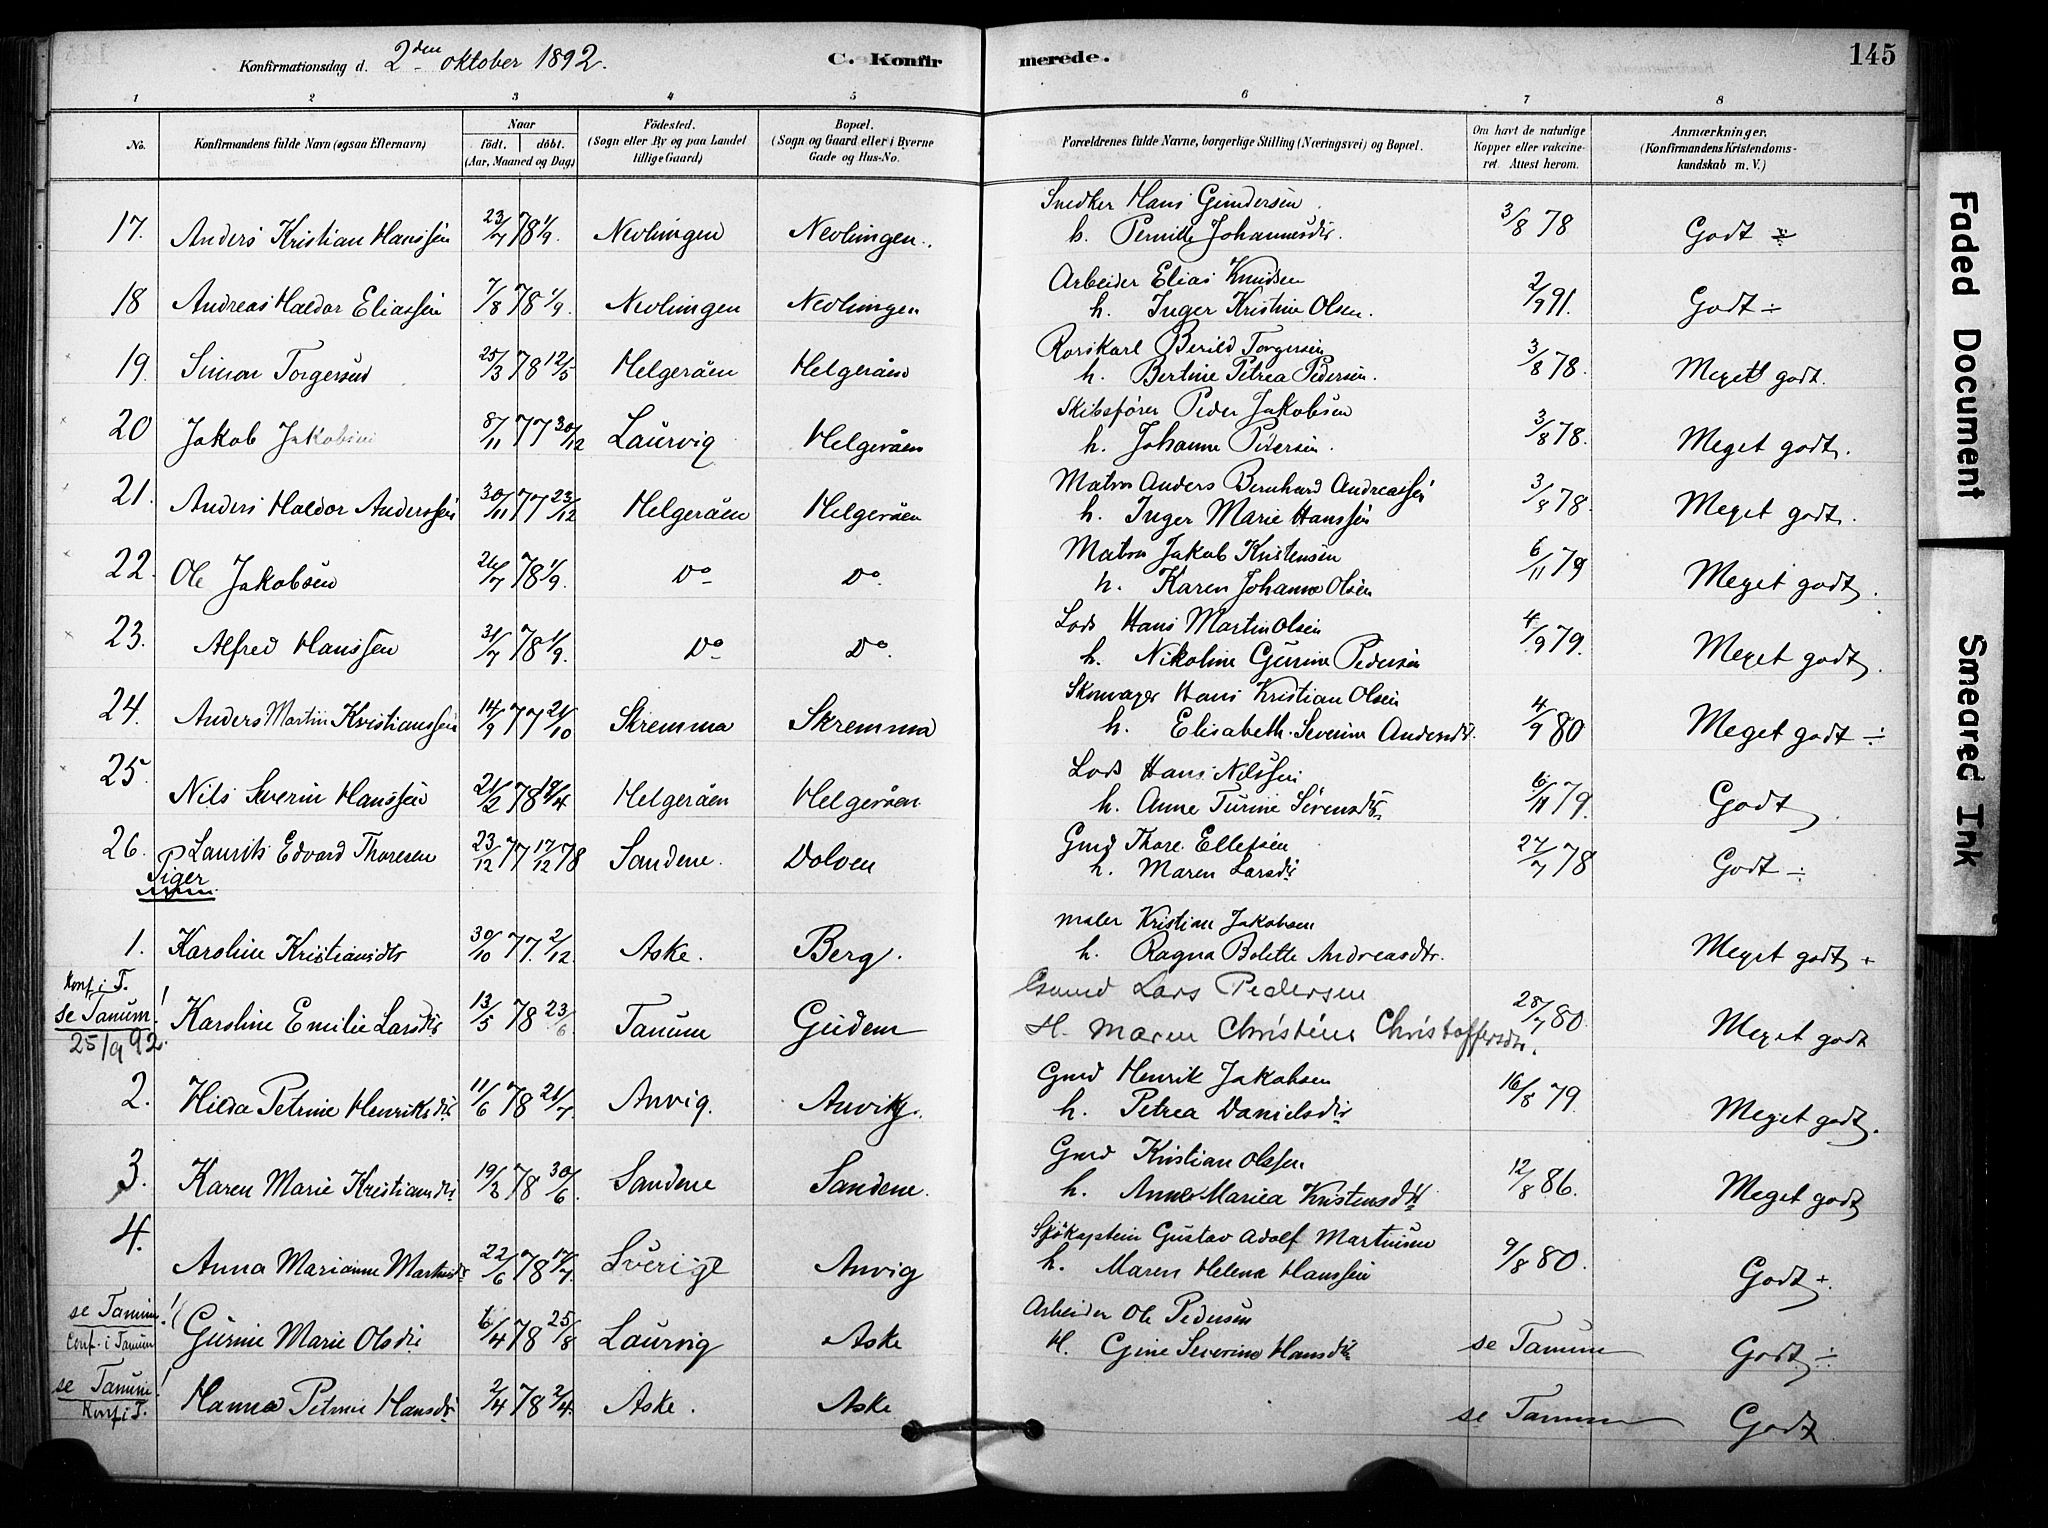 Konfirmationsdag d. 2den oktober 1892.
C. Konfirmerede.
145
1 2 3 4 5 6 7 8
No.
Konfirmandens fulde Navn (ogsaa Efternavn)
Naar
födt. döbt.
(Aar, Maaned og Dag)
Födested.
(Sogn eller By og paa Landet
tillige Gaard)
Bopæl.
(Sogn og Gaard eller i Byerne
Gade og Hus-No.
Forældrenes fulde Navne, borgerlige Stilling (Næringsvei) og Bopæl.
Om havt de naturlige
Kopper eller vakcine-
ret. Attest herom.
Anmærkninger.
(Konfirmandens Kristendoms-
kundskab m. V.)
17. Anders Kristian Hanssen 23/7 78 1/9. Nevlungen Nevlungen. Snedker Hans Gundersen 3/8 78 Godt ÷
h. Pernille Johannesdtr.
18 Andreas Haldor Eliassen 7/8 78 1/9. Nevlungen Nevlungen Arbeider Elias Knudsen 2/9 91. Godt ÷
h. Inger Kristine Olsen.
19. Simon Torgersen 25/3 78 12/5 Helgeråen Helgeråen Berild Torgersen 3/8 78. Meget godt.
h. Bertine Petrea Pedersen.
20 Jakob Jakobsen 8/11 77 30/12 Laurvig Helgeråen Skibsfører Peder Jakobsen 3/8 78. Meget godt.
h. Johanne Petersen.
21. Anders Haldor Anderssen 30/11 77 23/12 Helgeråen Helgeråen Matros Anders Bernhard Andreassen 3/8 78. Meget godt.
h. Inger Marie Hanssen
22. Ole Jakobsen 26/7 78 1/9. Do Do. Matros Jakob Kristensen 6/11 79 Meget godt.
h. Karen Johanne Olsen
23. Alfred Hanssen 31/7 78 1/9. Do Do. Lods Hans Martin Olsen 4/9 79. Meget godt.
h. Nikoline Gurine Pedersen
24. Anders Martin Kristianssen 14/9 77 21/10 Skremma Skremma Skomager Hans Kristian Olsen 4/9 80 Meget godt ÷
h. Elisabeth Severine Andersdtr.
25. Nils Severin Hanssen 21/2 78 19/4 Helgeråen Helgeråen Lods Hans Nilssen 6/11 79. Godt.
h. Anne Turine Sörensdtr.
26. Laurits Edvard Thoresen 23/12 77 17/12 78 Sandene. Dolven Gmd Thore Ellefsen 27/7 78 Godt ÷
h. Maren Larsdtr
Piger
1. Karoline Kristiansdtr 30/10 77. 2/12 Aske. Berg. maler Kristian Jakobsen Meget godt +
h. Ragna Bolette Andreasdtr.
Konf i T.
se Tanum! Karoline Emilie Larsdtr 13/5 78 23/6 Tanum Gudem Gmd Lars Pedersen 28/7 80. Meget godt
25/9 92. H. Maren Christine Christoffersdtr.
2. Hilda Petrine Henriksdtr 11/6 78 21/7 Anvig. Anvik. Gmd Henrik Jakobsen 16/8 79. Meget godt.
h. Petrea Danielsdtr
3. Karen Marie Kristiansdtr 19/3 78 30/6 Sandene Sandene. Gmd Kristian Olssen 12/8 86. Meget godt
h. Anne Mariea Kristensdtr
4. Anna Marianne Martinsdtr 22/6 78 17/7. Sverige Anvig Sjökaptein Gustav Adolf Martinsen 9/8 80. Godt +.
h. Maren Helena Hanssen
se Tanum! Gurine Marie Olsdtr 6/4 78 25/8 Laurvig Aske Arbeider Ole Pedersen se Tanum Godt ÷
Conf. i Tanum H. Gine Severine Hansdtr
se Tanum! Hanna Petrine Hansdtr 2/4 78 2/4. Aske. Aske se Tanum Godt
Konf i T.
Faded Document
Smeared Ink